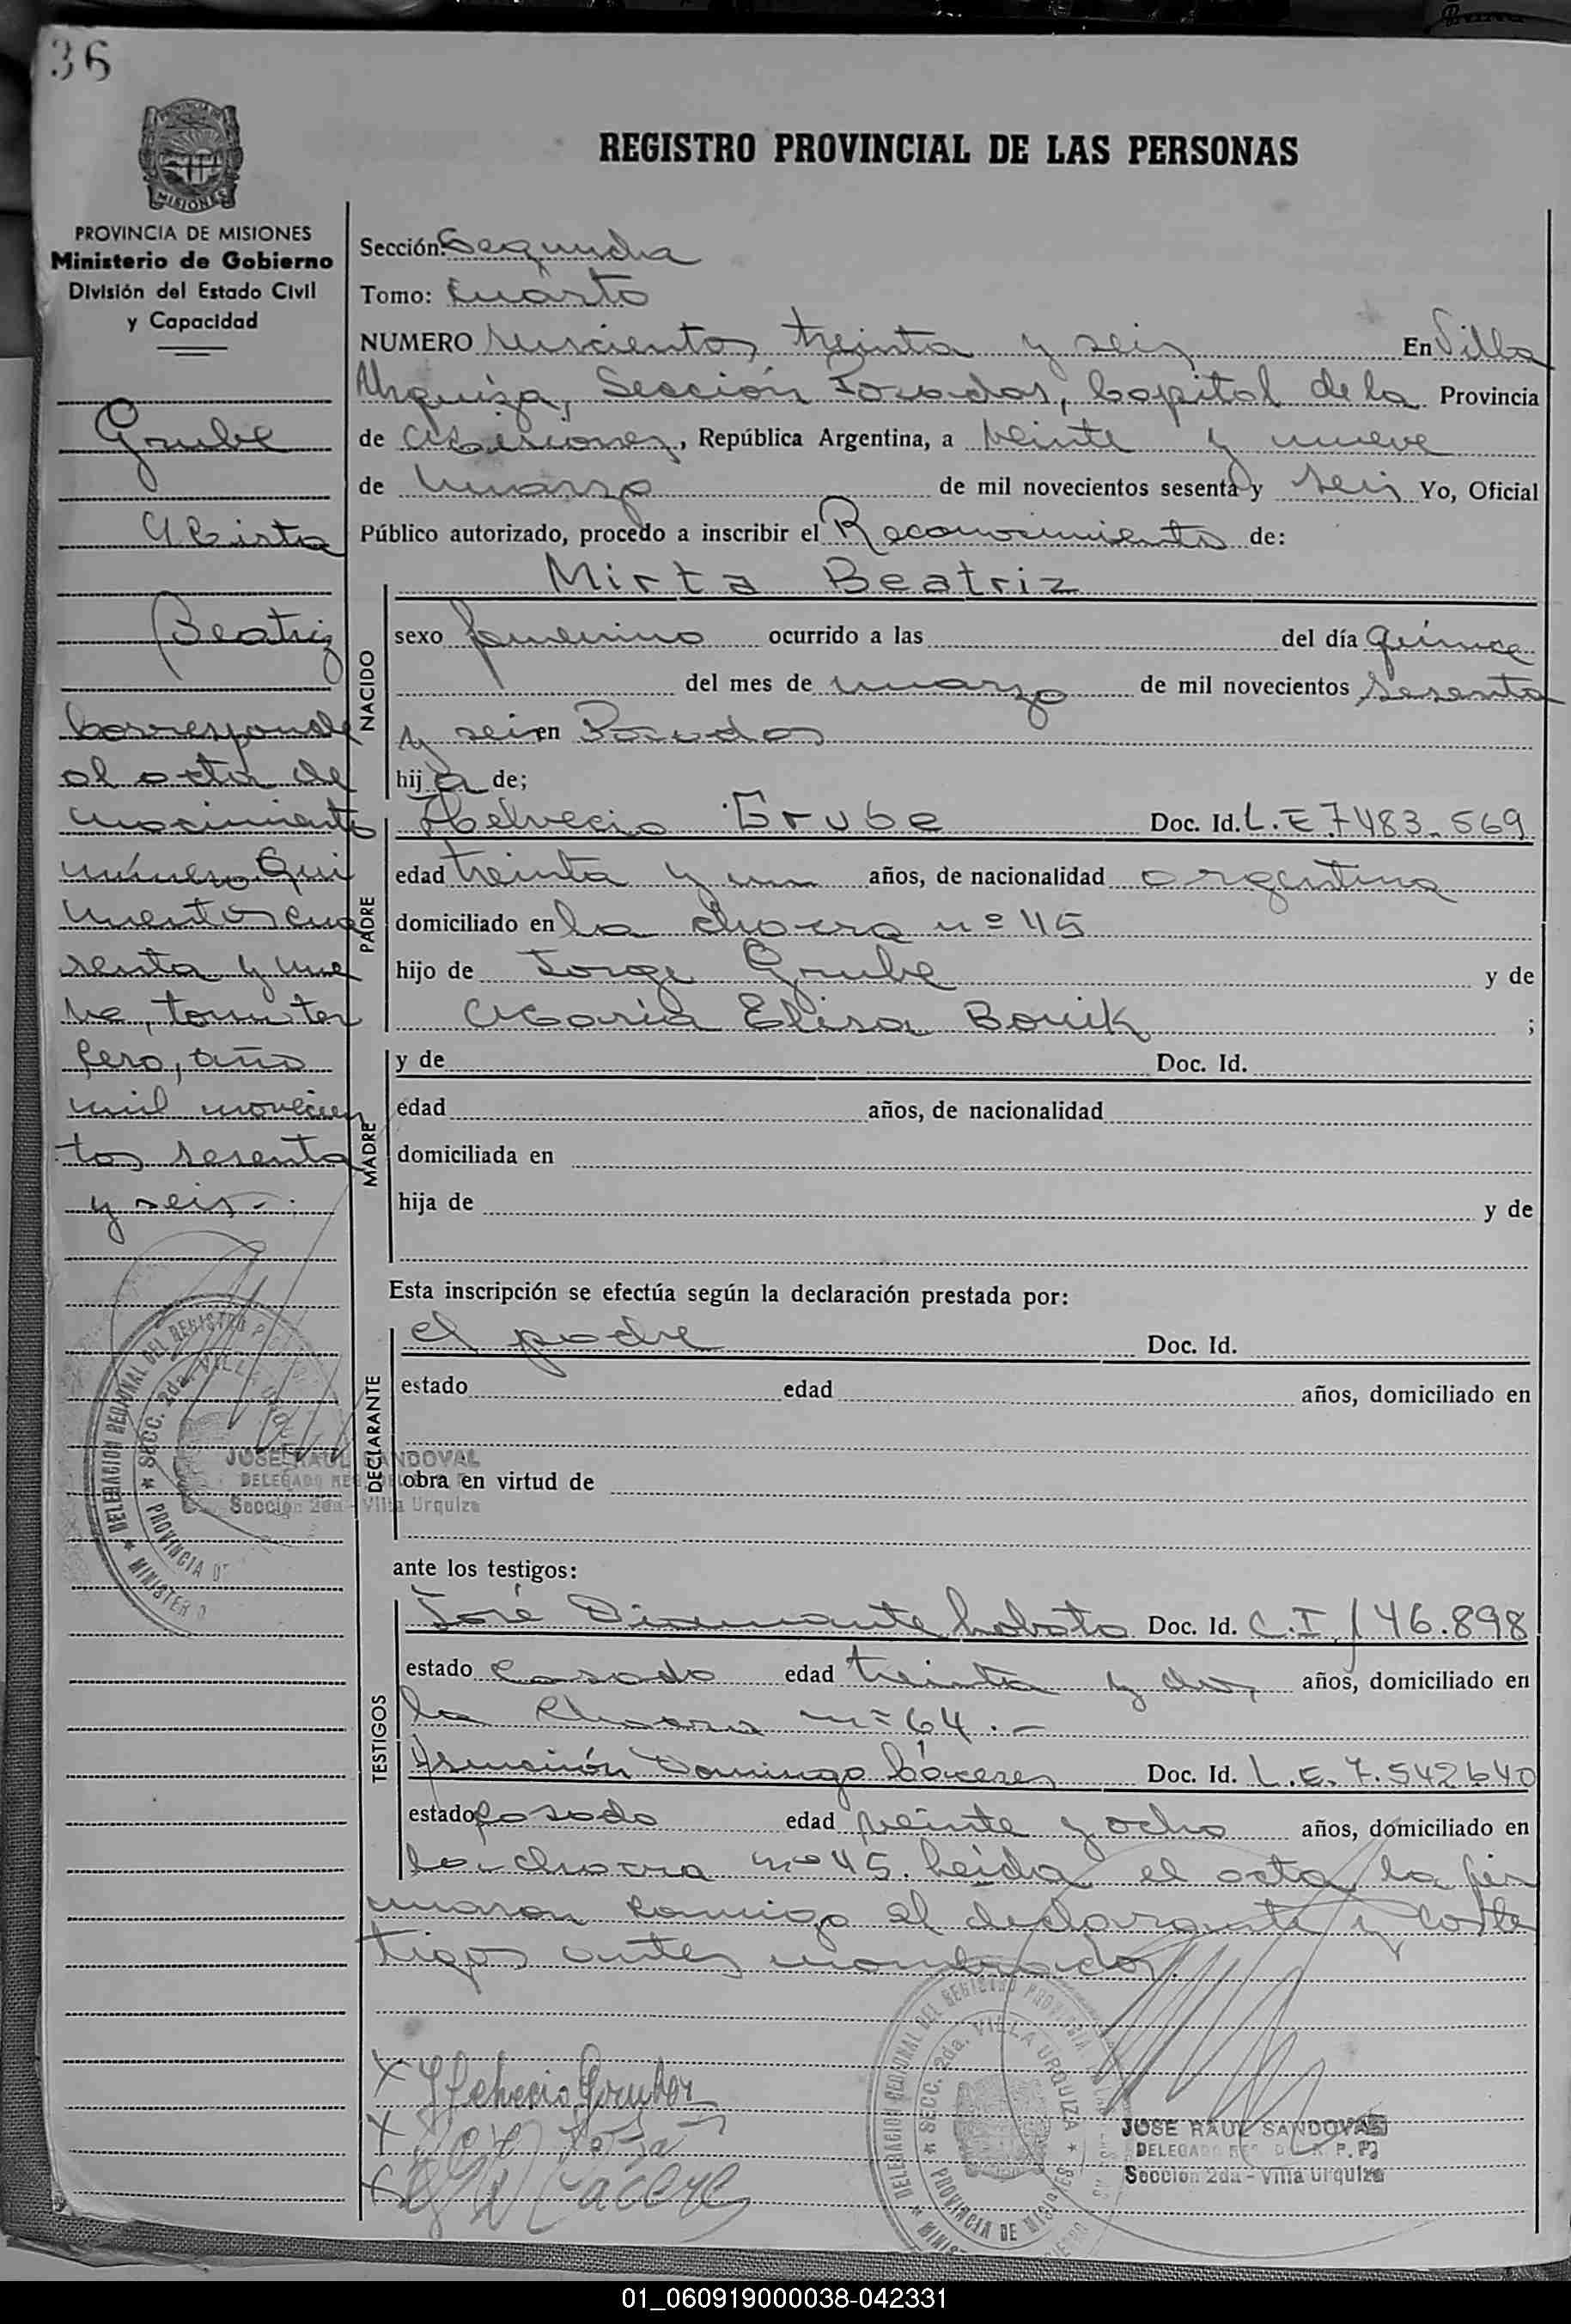 36
MISIONES
REGISTRO PROVINCIAL DE LAS PERSONAS
PROVINCIA DE MISIONES
Ministerio de Gobierno
División del Estado Civil
y Capacidad
Grube
Mirta
Beatriz
Corresponde
al acta de
nacimiento
número Qui
nientos cua
renta y nue
ve, tomo ter
cero, año
mil novecien
tos sesenta
y seis.-
DELEGACION REGIONAL DEL REGISTRO
SECC. 2da. VILLA
PROVINCIA
JOSE RAUL SANDOVAL
DELEGADO
Sección 2da - Villa Urquiza
Sección: Segunda
Tomo: Cuarto
NUMERO seiscientos treinta y seis En Villa
Urquiza, Sección Posadas, Capital de la Provincia
de Misiones, República Argentina, a veinte y nueve
de marzo de mil novecientos sesenta y seis Yo, Oficial
Público autorizado, procedo a inscribir el Reconocimiento de:
Mirta Beatriz
NACIDO
sexo femenino ocurrido a las del día quince
del mes de marzo de mil novecientos sesenta
y seis en Posadas
hija de;
PADRE
Helvecio Grube Doc. Id. L.E 7483.569
edad treinta y un años, de nacionalidad argentina
domiciliado en la chacra nº 45
hijo de Jorge Grube y de
María Elisa Bouik ;
MADRE
y de Doc. Id.
edad años, de nacionalidad
domiciliada en
hija de y de
Esta inscripción se efectúa según la declaración prestada por:
DECLARANTE
el padre Doc. Id.
estado edad años, domiciliado en
obra en virtud de
ante los testigos:
TESTIGOS
José Diamante Lobato Doc. Id. C.I. 146.898
estado Casado edad treinta y dos, años, domiciliado en
la Chacra nº 64.-
Asunción Domingo Cáceres Doc. Id. L.E. 7.542640
estado Casado edad veinte y ocho años, domiciliado en
la chacra nº 45. Leida el acta la fir
maron conmigo el declarante y los tes
tigos antes nombrados.
X Helvecio Gruber
X
X Caceres
DELEGACION REGIONAL DEL REGISTRO PROVINCIAL
SECC. 2da. VILLA URQUIZA
PROVINCIA DE MISIONES
JOSE RAUL SANDOVAL
DELEGADO REG. DEL R. P. P.
Sección 2da - Villa Urquiza
01_060919000038-042331